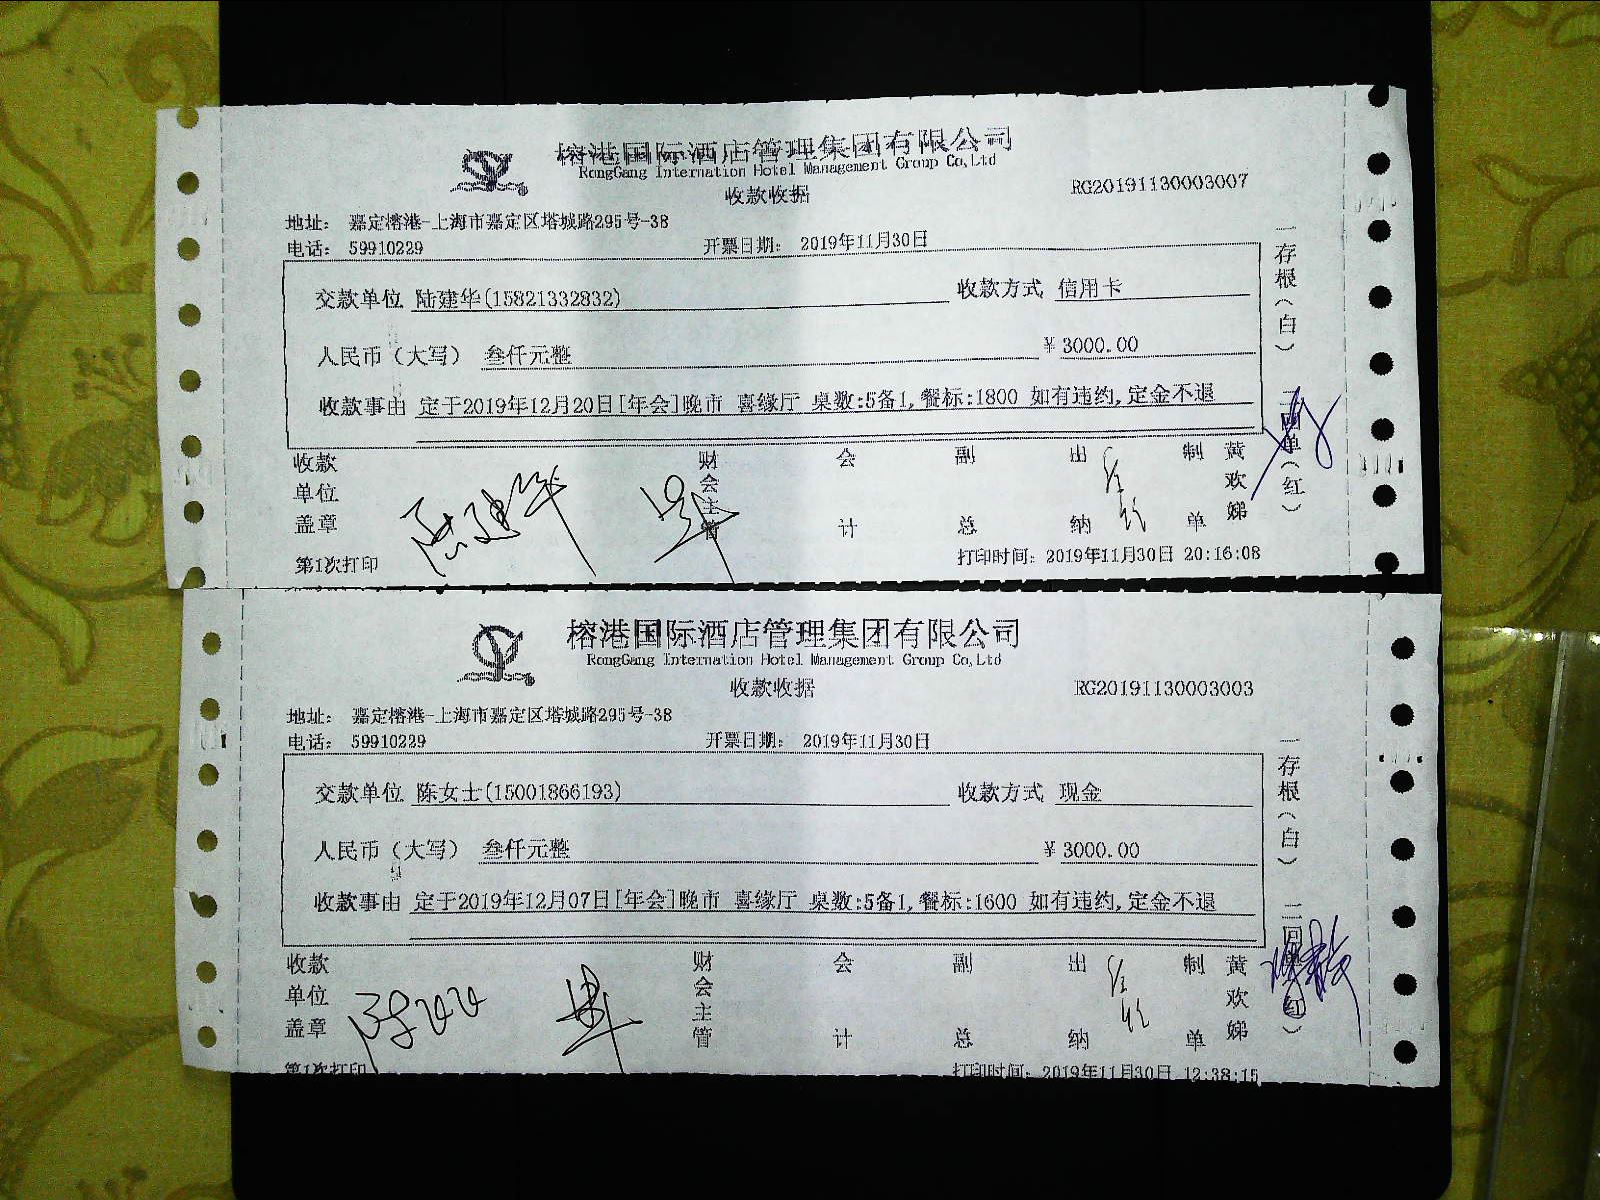 榕港国际酒店管理集团有限公司
RongGang Internation Hotel Management Group Co,Ltd
收款收据
RG20191130003007
地址： 嘉定榕港-上海市嘉定区塔城路295号-38
电话： 59910229 开票日期： 2019年11月30日
交款单位 陆建华(15821332832) 收款方式 信用卡
人民币（大写） 叁仟元整 ¥ 3000.00
收款事由 定于2019年12月20日[年会]晚市 喜缘厅 桌数:5备1,餐标:1800 如有违约,定金不退
一存根（白）
二回单（红）
收款单位盖章 陆建华 财会主管 会计 副总 出纳 制单 黄欢娣
第1次打印 打印时间： 2019年11月30日 20:16:08
榕港国际酒店管理集团有限公司
RongGang Internation Hotel Management Group Co,Ltd
收款收据
RG20191130003003
地址： 嘉定榕港-上海市嘉定区塔城路295号-38
电话： 59910229 开票日期： 2019年11月30日
交款单位 陈女士(15001866193) 收款方式 现金
人民币（大写） 叁仟元整 ¥ 3000.00
收款事由 定于2019年12月07日[年会]晚市 喜缘厅 桌数:5备1,餐标:1600 如有违约,定金不退
一存根（白）
二回单（红）
收款单位盖章 财会主管 会计 副总 出纳 制单 黄欢娣
第1次打印 打印时间： 2019年11月30日 12:38:15